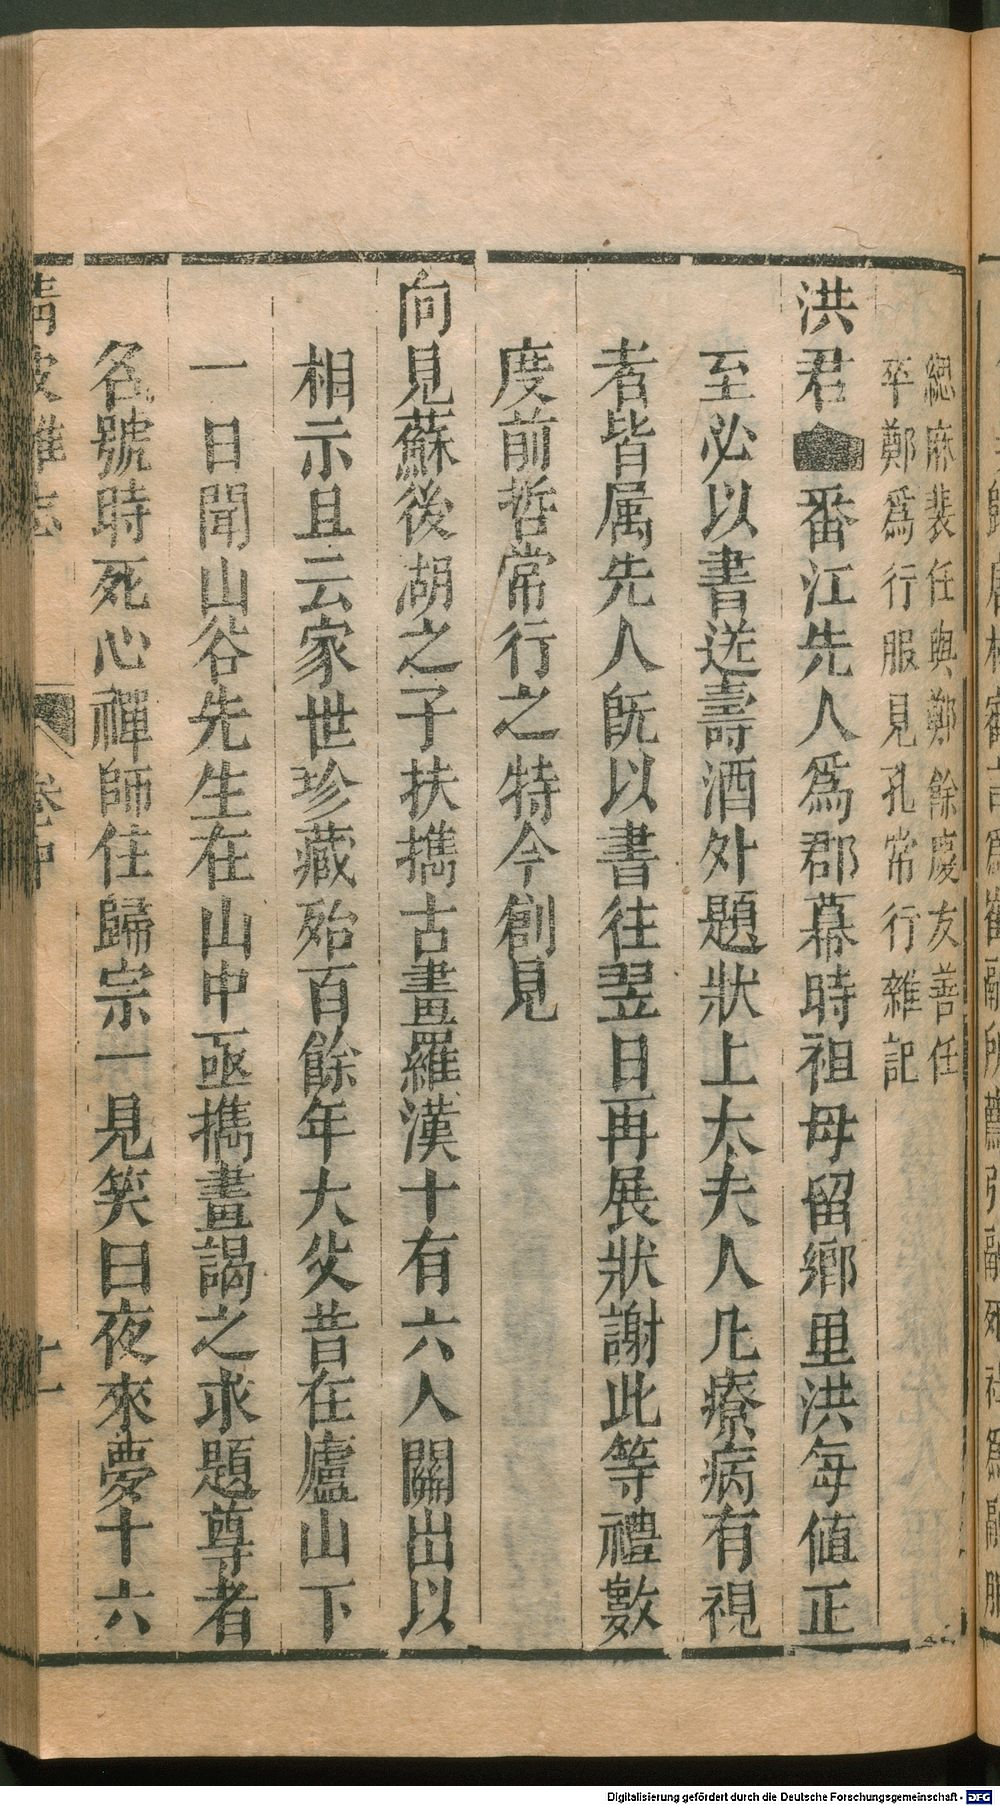 緦麻裴任與鄭餘慶友善任
卒鄭爲行服見孔常行雜記
洪君番江先人爲郡幕時祖母留鄉里洪每值正
至必以書送壽酒外題狀上太夫人凡療病有視
者皆属先人旣以書往翌日再展狀謝此等禮數
度前哲常行之特今創見
向見蘇後湖之子扶攜古畫羅漢十有六人關出以
相示且云家世珍藏殆百餘年大父昔在廬山下
一日聞山谷先生在山中亟攜畫謁之求題尊者
名號時死心禪師住歸宗一見笑曰夜來夢十六
清波雜志 卷中 十一
Digitalisierung gefördert durch die Deutsche Forschungsgemeinschaft - DFG